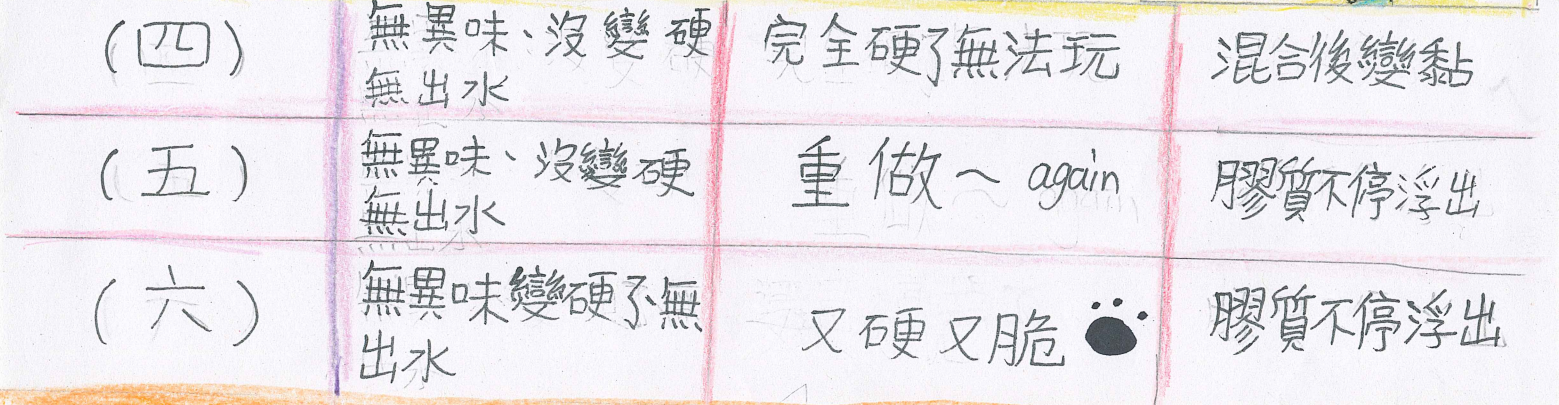 (四)
無異味、沒變硬
無出水
完全硬了無法玩
混合後變黏
(五)
無異味、沒變硬
無出水
重做~again
膠質不停浮出
(六)
無異味變硬了、無
出水
又硬又脆
膠質不停浮出